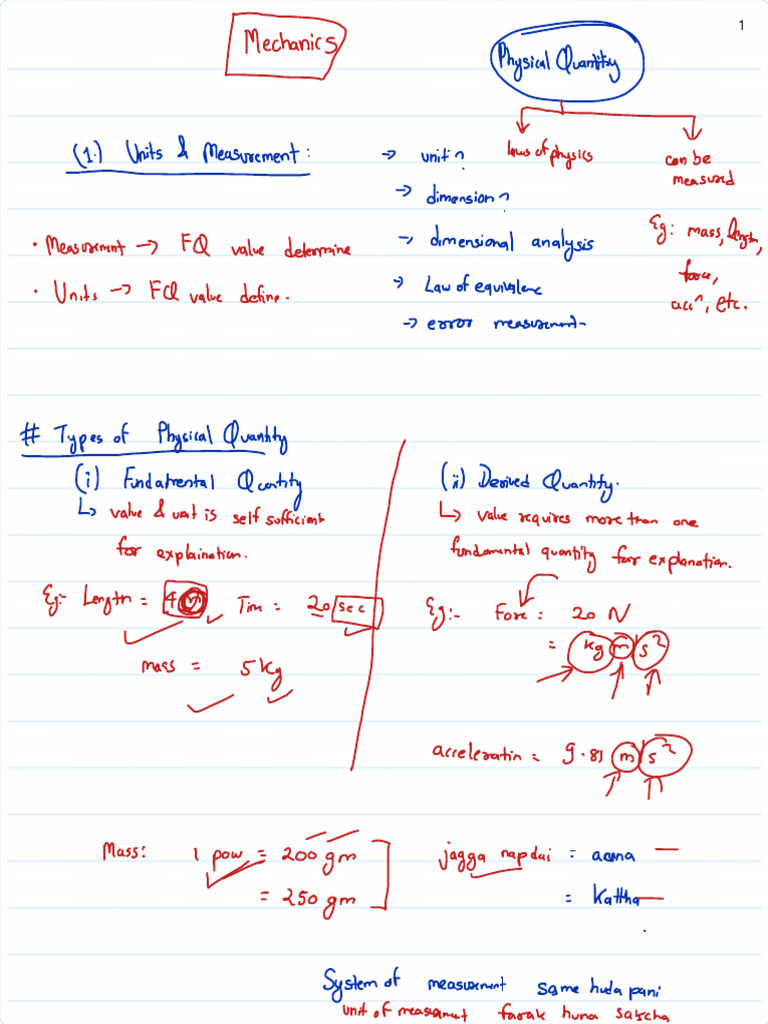 1
Mechanics
Physical Quantity
(1.) Units & Measurement:
→ unit?
laws of physics
can be
measured
→ dimension?
→ dimensional analysis
Eg: mass, length,
force,
accⁿ, etc.
• Measurement → FQ value determine
• Units → FQ value define.
→ Law of equivalenc
→ error measurement
# Types of Physical Quantity
(i) Fundamental Quantity
↳ value & unit is self sufficient
for explaination.
Eg:- Length = 4 m Tim = 20 sec
mass = 5 kg
(ii) Derived Quantity.
↳ value requires more than one
fundamental quantity for explanation.
Eg:- Force = 20 N
= kg m/s²
acceleratin = 9.81 m/s²
Mass: 1 pow = 200 gm
= 250 gm
jagga napdai = aana
= Kattha
System of measurement same huda pani
unit of measurment farak huna sakcha